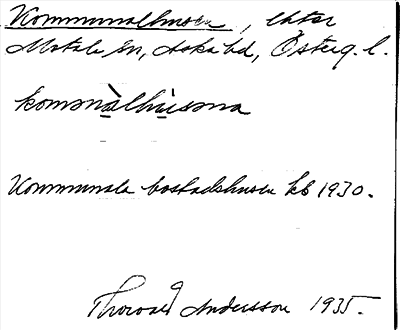 Kommunalhusen, ehter
Motala sn, Aska hd, Österg. l.
komənàlhùsəna
Kommunala bostadshusen kb 1930.
Thorvald Andersson 1935.